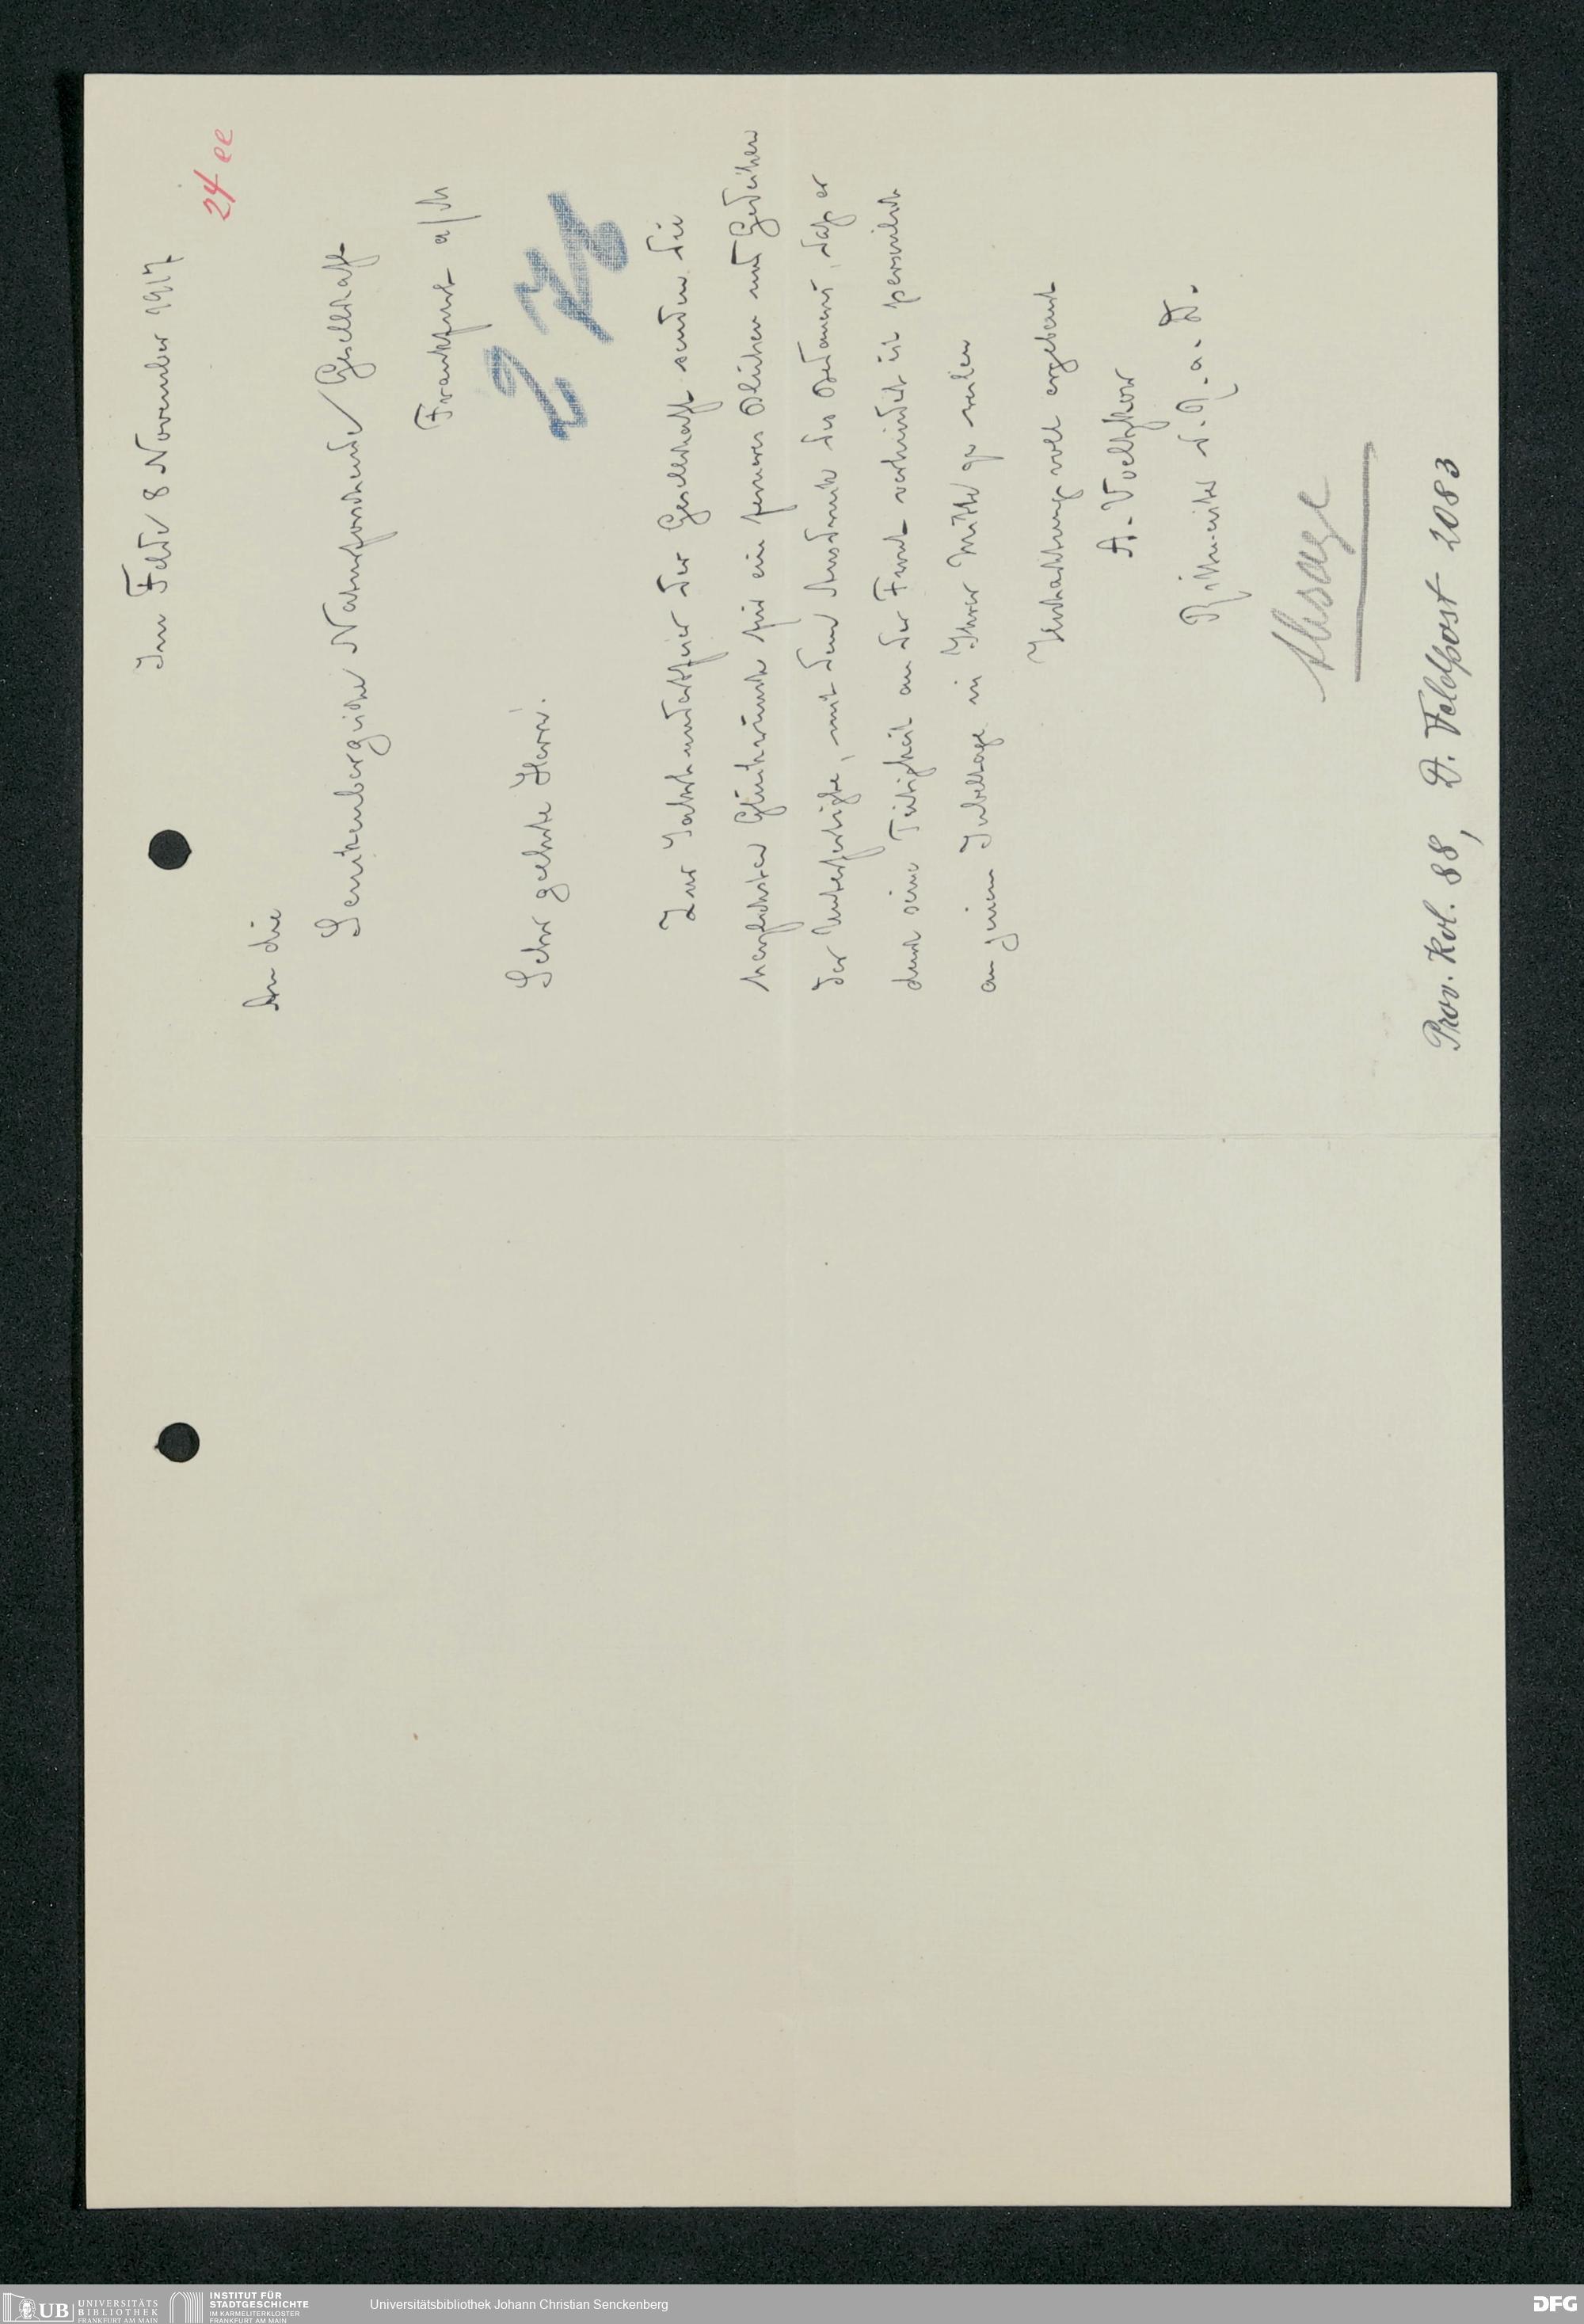 Im Felde 8 November 1917
24 ee
An die
Senckenbergische Naturforschende Gesellschaft
Frankfurt a/M
Sehr geehrte Herrn!
Zur Jahrhundertfeier der Gesellschaft sendet die
herzlichsten Glückwünsche für ein ferneres Blühen und Gedeihen
der Unterfertigte, mit dem Ausdruck des Bedauerns, daß er
durch seine Tätigkeit an der Front verhindert ist persönlich
an jenem Jubeltage in Ihrer Mitte zu weilen
Hochachtungsvoll ergebenst
A. Voeltzkow
Rittmeister d. R. a. D.
Absage
Prov. Kol. 88, D. Feldpost 2083
UB UNIVERSITÄTS
BIBLIOTHEK
FRANKFURT AM MAIN
INSTITUT FÜR
STADTGESCHICHTE
IM KARMELITERKLOSTER
FRANKFURT AM MAIN
Universitätsbibliothek Johann Christian Senckenberg
DFG